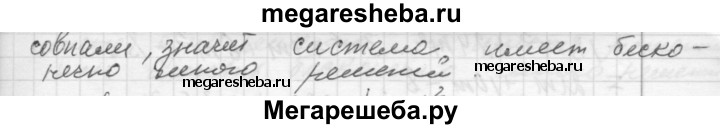 megaresheba.ru
совпали, значит система имеет беско-
нечно много решений.
megaresheba.ru
megaresheba.ru
Мегарешеба.ру